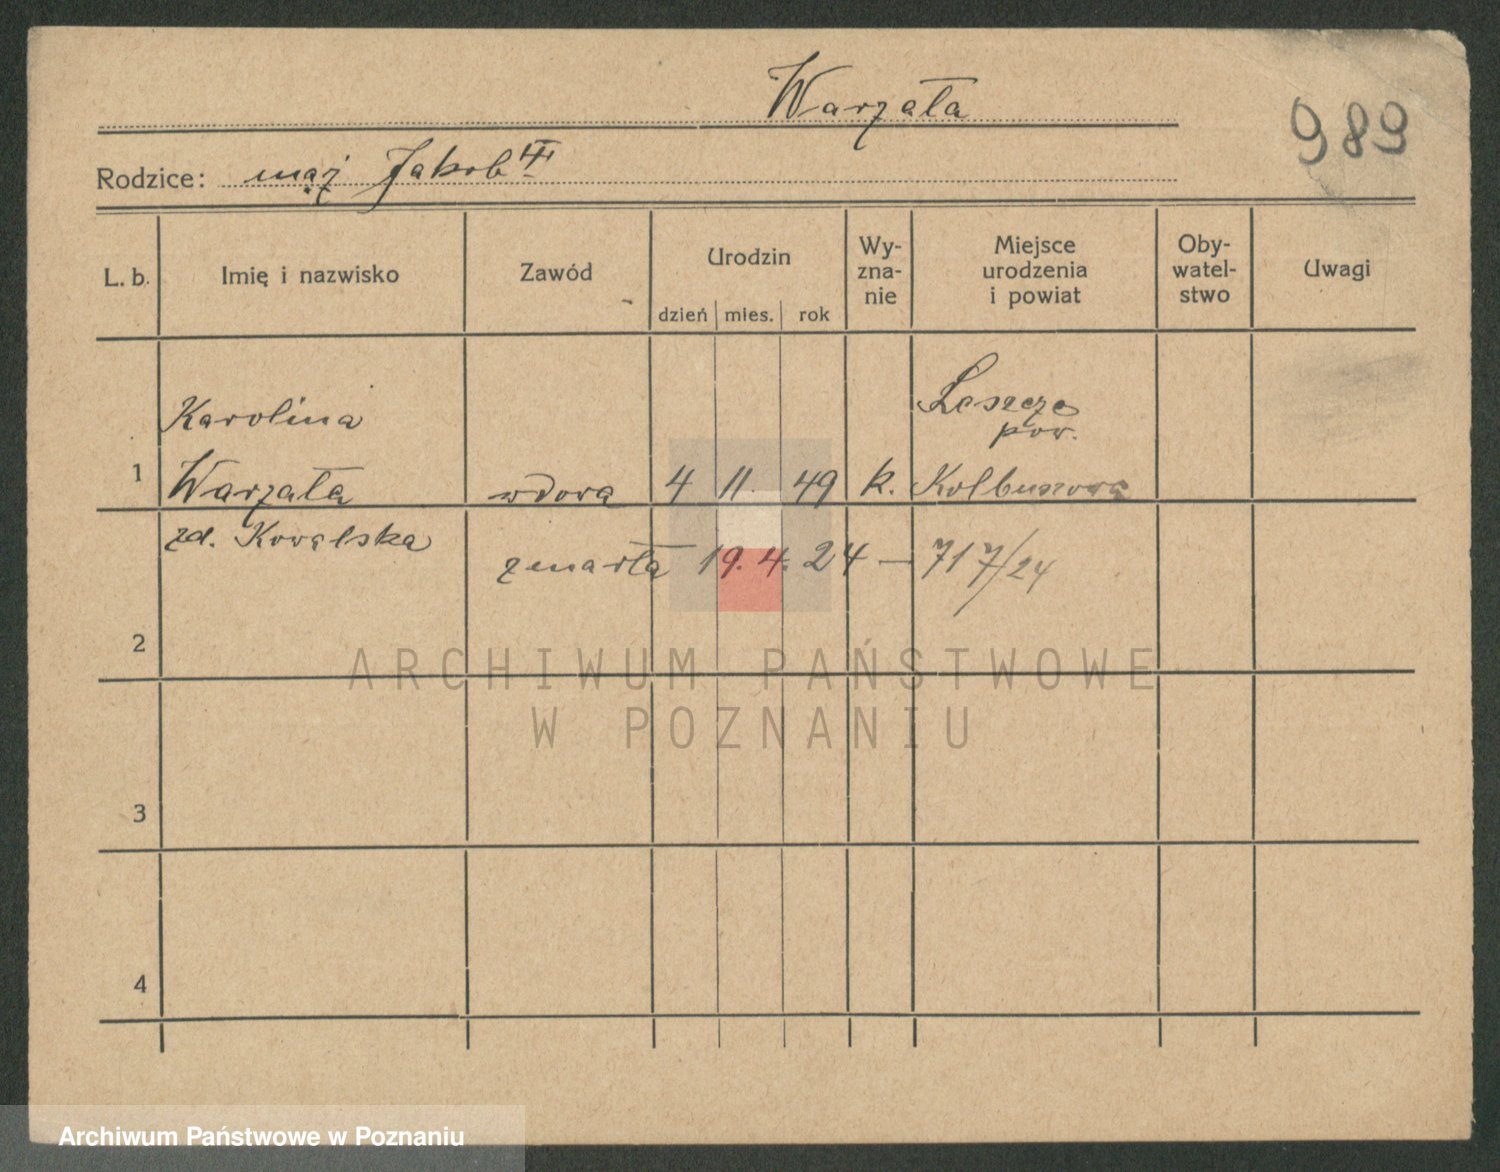 Warzała
989
Rodzice: mąż Jakob
L. b. Imię i nazwisko Zawód Urodzin dzień mies. rok Wy-zna-nie Miejsce urodzenia i powiat Oby-watel-stwo Uwagi
Karolina Leszcze
pow.
1 Warzała wdowa 4 11. 49 k. Kolbuszowa
zd. Kowalska
zmarła 19. 4. 24 — 717/24
2
ARCHIWUM PAŃSTWOWE
W POZNANIU
3
4
Archiwum Państwowe w Poznaniu